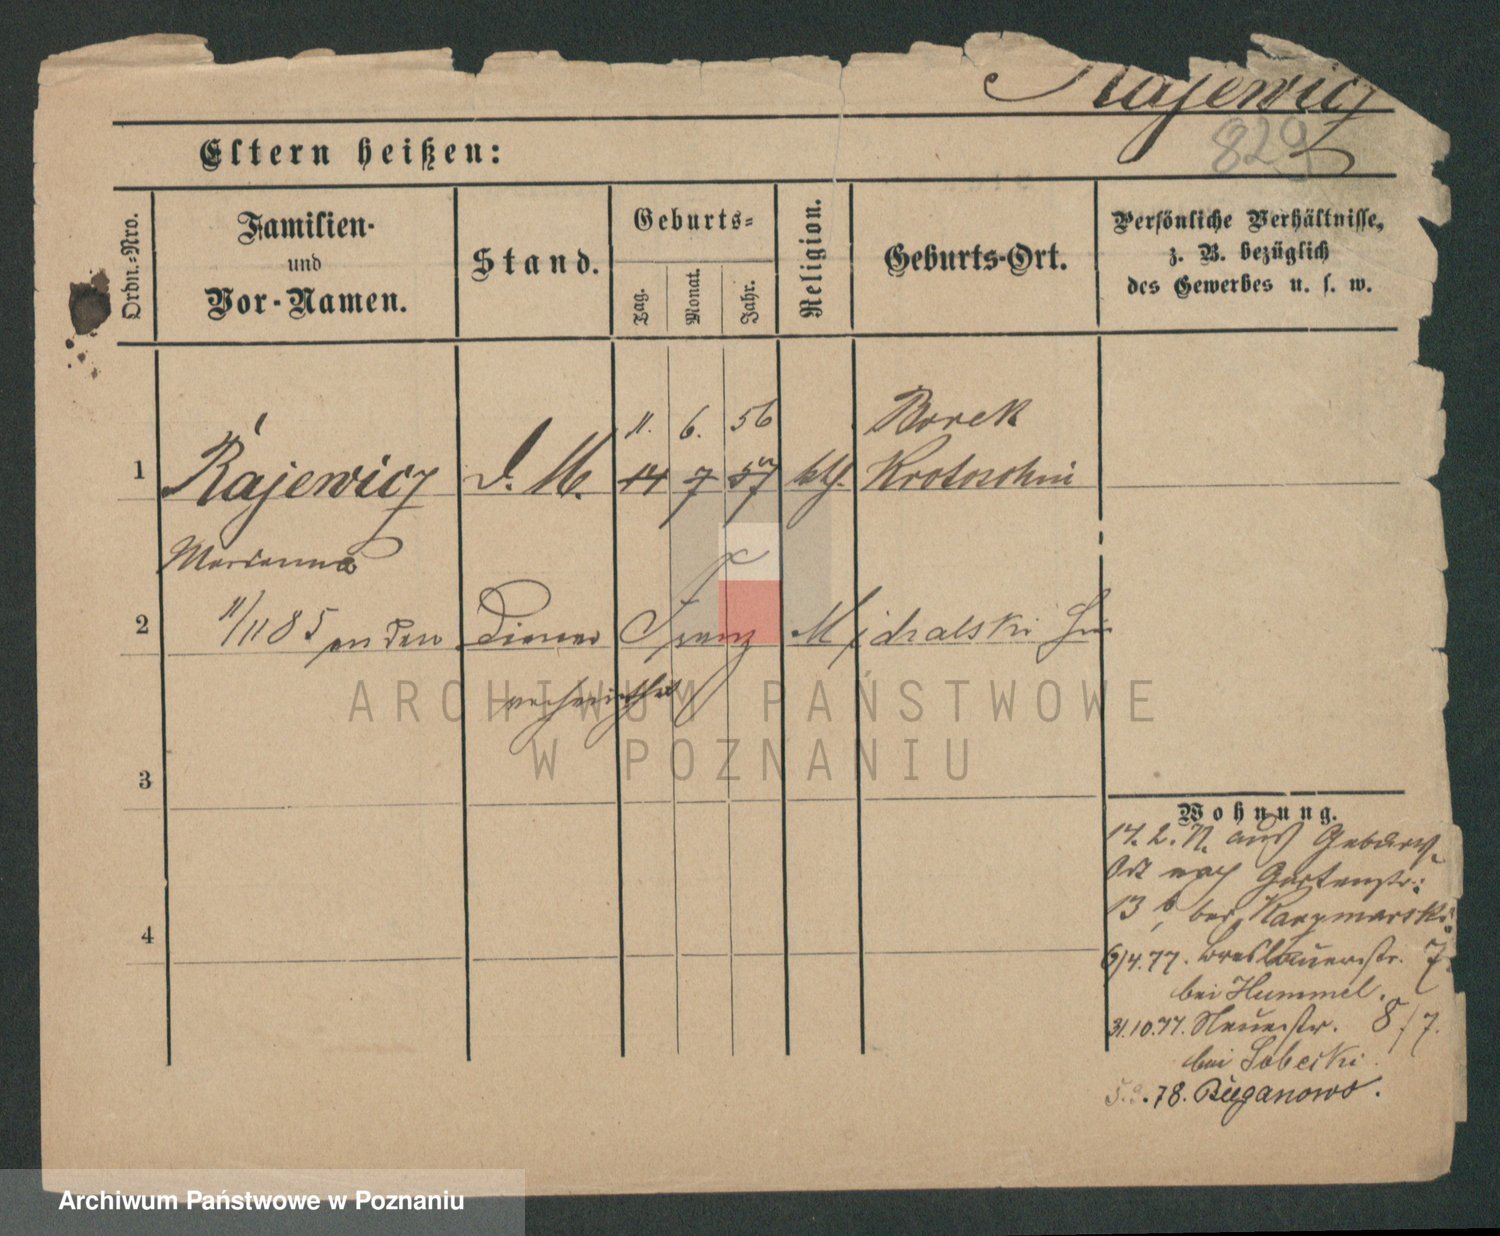 Rajewicz
829
Eltern heißen:
Ordn.-Nro.
Familien-
und
Vor-Namen.
Stand.
Geburts-
Tag.
Monat.
Jahr.
Religion.
Geburts-Ort.
Persönliche Verhältnisse,
z. B. bezüglich
des Gewerbes u. s. w.
11. 6. 56 Borek
1 Rajewicz d. M. 14 7 57 kth. Krotoschin
Marianna
2 11/11 85 an den Diener Franz
verheirathet
3
4
Wohnung.
17. 2. 77. aus Geburts-
Ort nach Gartenstr.
13 b, bei Kaczmarski
6/4.77. Breslauerstr. 7.
bei Hummel.
31.10.77. Neuestr. 8/7.
bei Sobecki.
5.3.78. Buganowo.
ARCHIWUM PAŃSTWOWE
W POZNANIU
Archiwum Państwowe w Poznaniu